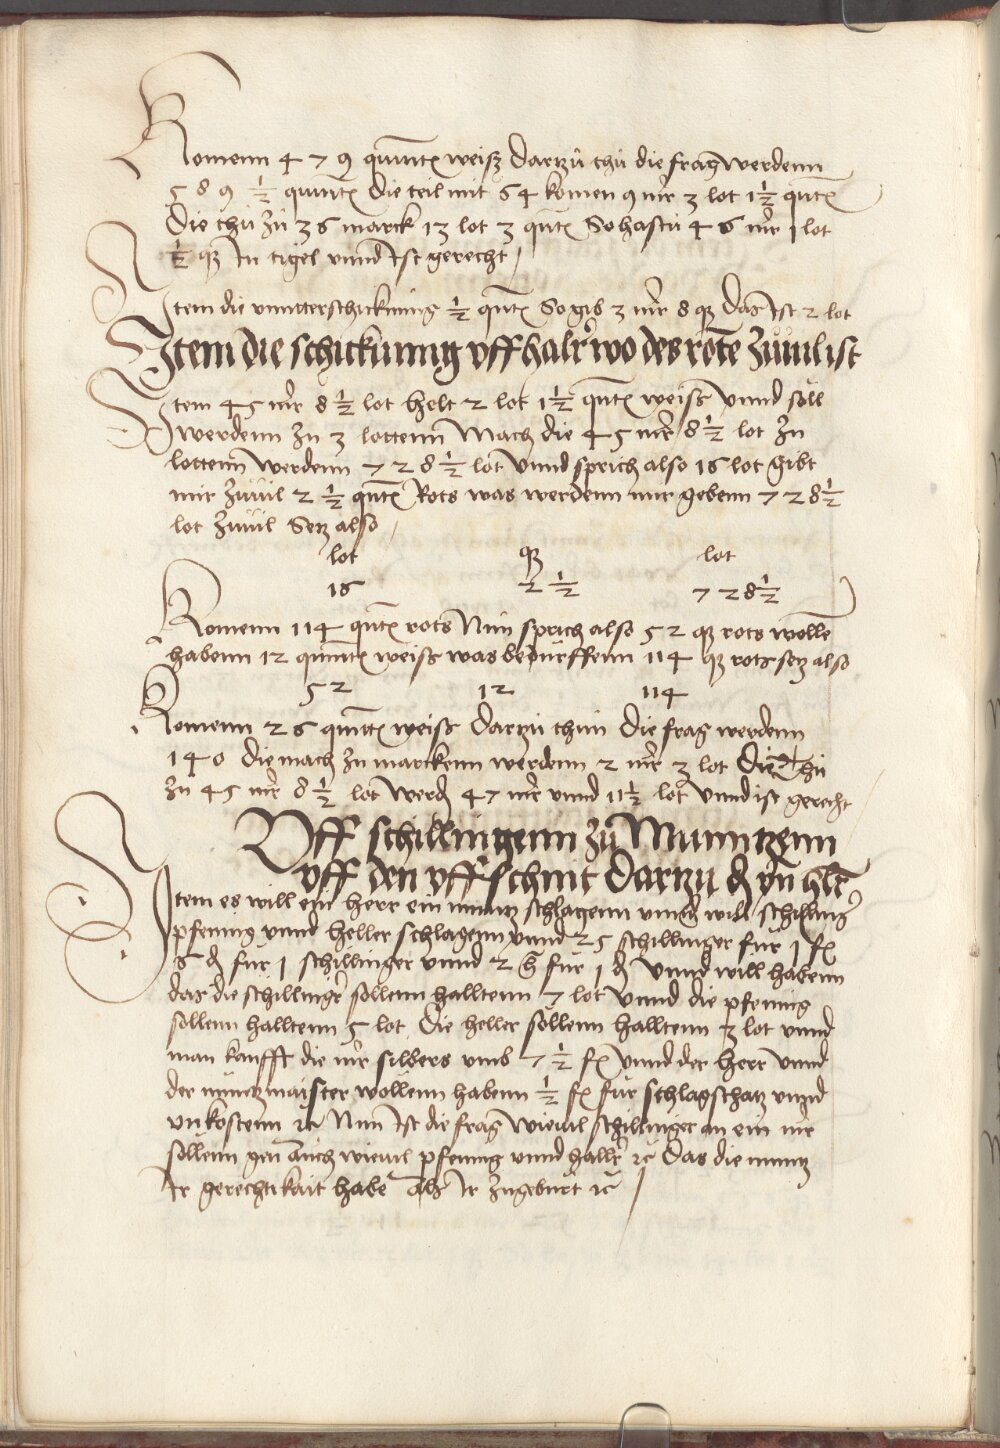 Komenn 4 7 9 quintͤ weiß dartzů thů die frag werdenn
5 8 9 ½ quintͤ die teil mit 64 komen 9 mr 3 lot 1½ qntͤ
Die thů zů 36 marck 13 lot 3 qntͤ So hastu 46 mr 1 lot
½ q In tigel vnnd Ist gerecht
Item die vnntterschickunng ½ qntͤ So gib 3 mr 8 q das Ist 2 lot
Item die schickunng vff halr wo des rote zuuil ist
Item 45 mr 8½ lot helt 2 lot 1½ qntͤ weiß vnnd soll
werdenn zu 3 lottenn Mach die 45 mr 8½ lot zu
lottenn werdenn 7 2 8½ lot vnnd sprich also 16 lot gibt
mir zuuil 2 ½ qntͤ Rots was werdenn mir gebenn 7 2 8½
lot zuuil Setz also
lot q lot
16 2 ½ 7 2 8½
Komenn 114 qntͤ rots Nun sprich also 52 q rots wolle
habenn 12 quintͤ weiß was bedürffenn 114 q rots setz also
52 12 114
Komenn 26 quintͤ weiß dartzu thun die frag werdenn
140 die mach zu marckenn werdenn 2 mr 3 lot Die thů
zu 45 mr 8½ lot werd 47 mr vnnd 11½ lot vnnd ist gerecht
Vff schillingenn zů Munntzenn
vff den vffschnit dartzu ₰ vn hlr
Item es will ein herr ein muntz schlagenn vnnd will schilling
pfening vnnd heller schlagenn vnnd 25 schillinger für 1 fl
6 ₰ für 1 schillinger vnnd 2 h für 1 ₰ vnnd will habenn
das die schillinger sollenn halltenn 7 lot vnnd die pfening
sollenn halltenn 5 lot die heller sollenn halltenn 3 lot vnnd
man kaufft die mr silbers vmb 7½ fl vnnd der herr vnnd
der müntzmaister wollenn habenn ½ fl für schlagschatz vnnd
vnkostenn ꝛc Nun Ist die frag wieuil schillinger an ein mr
sollenn gen auch wieuil pfening vnnd hallr ꝛc Das die muntz
Ir gerechtikait habe als Ir zugeburt ꝛc